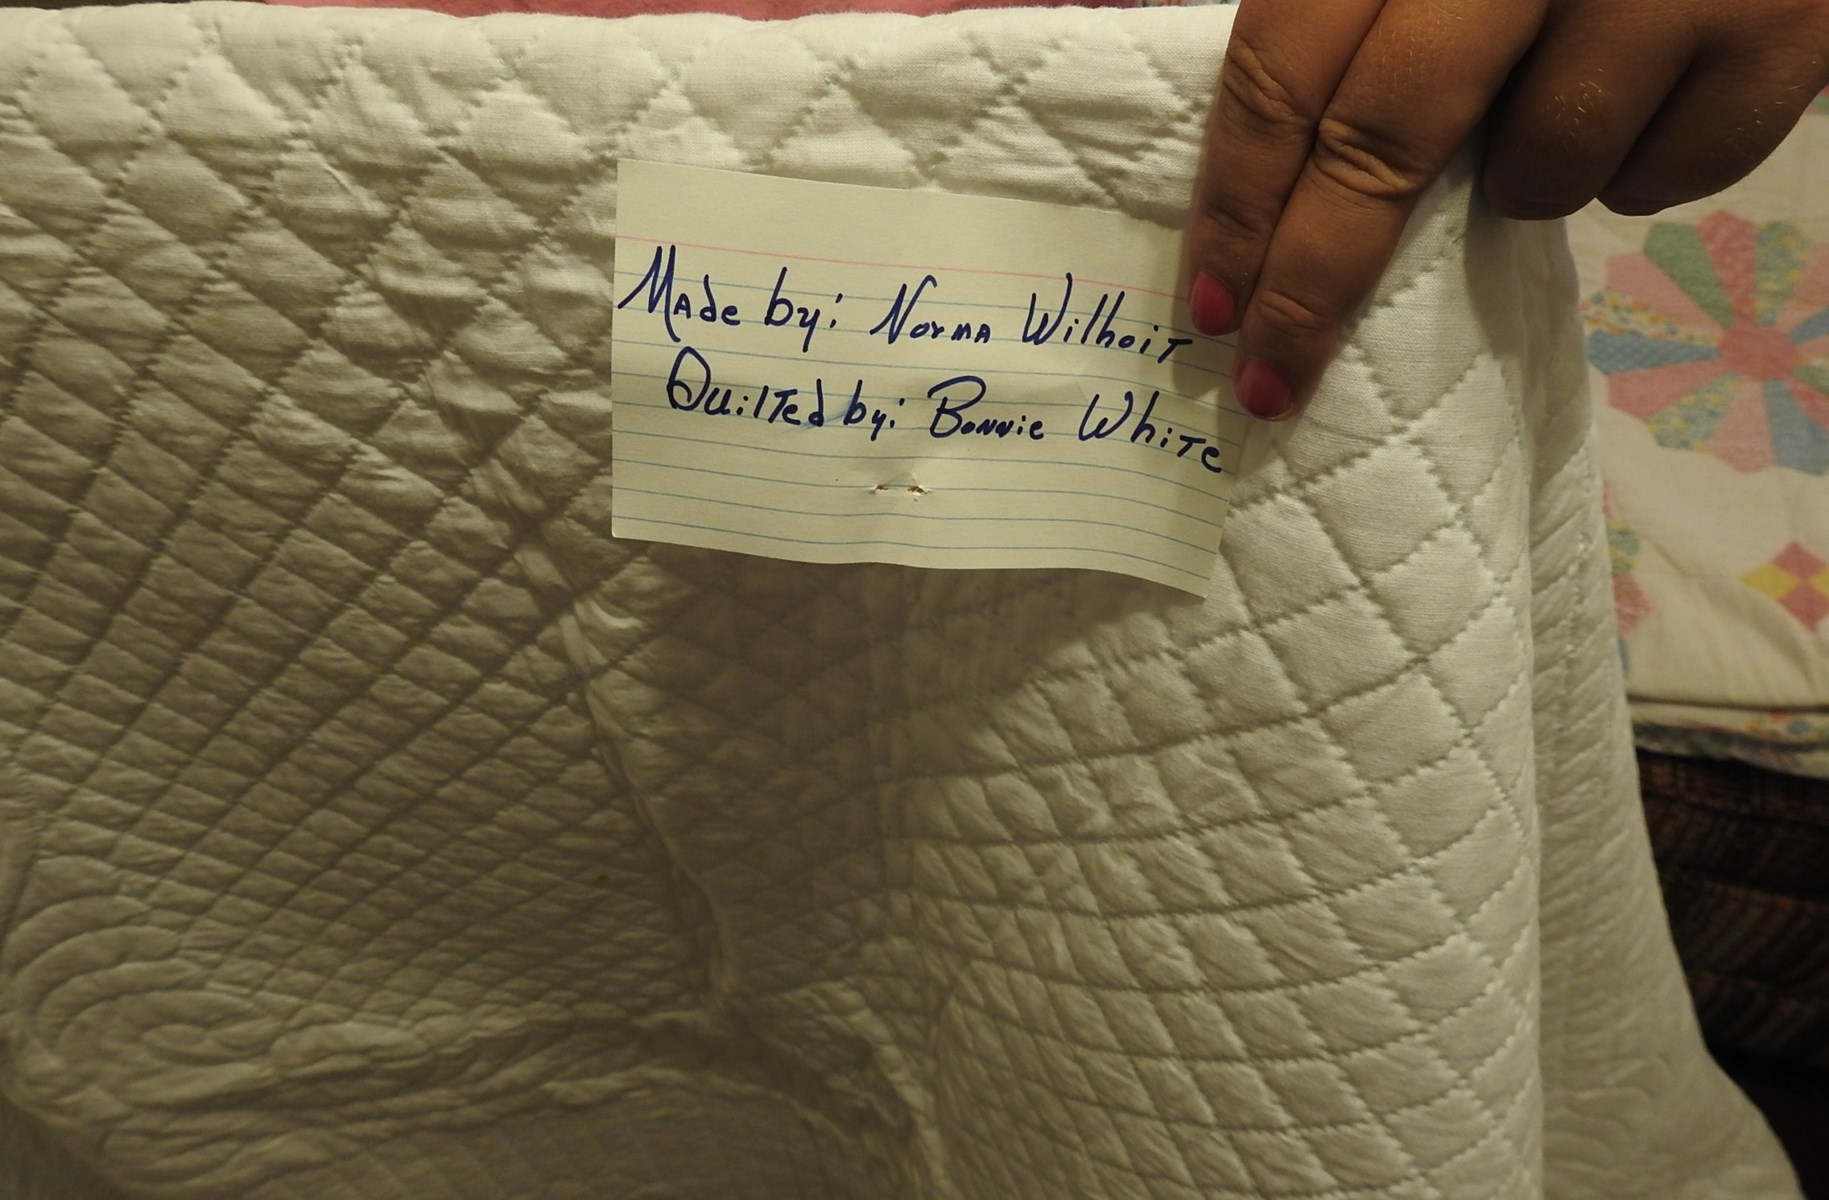 Made by: Norma Wilhoit
Quilted by: Bonnie White